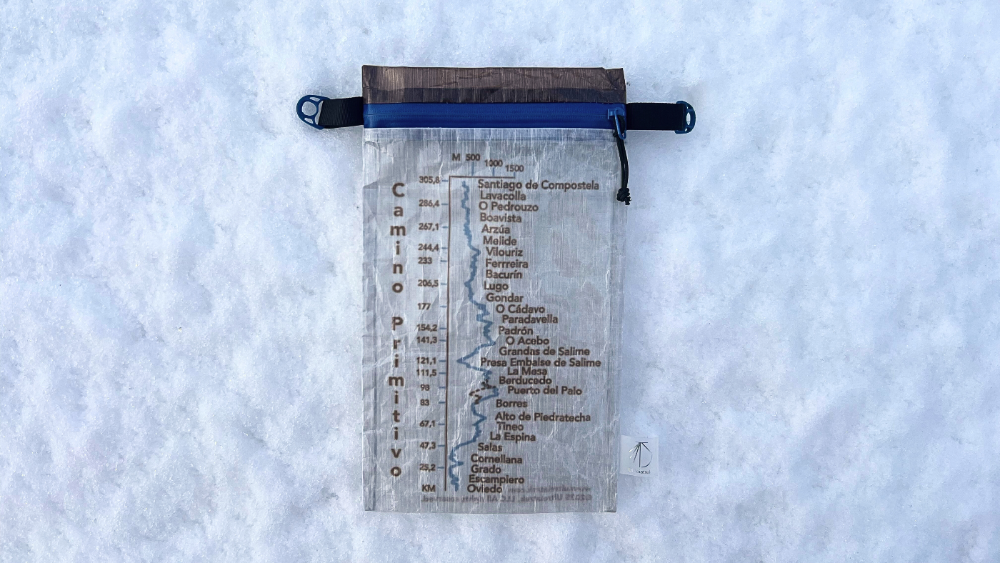 M 500 1000 1500
Camino Primitivo
305,8
Santiago de Compostela
Lavacolla
286,4
O Pedrouzo
Boavista
267,1
Arzúa
Melide
244,4
Vilouriz
233
Ferrreira
Bacurín
206,5
Lugo
Gondar
177
O Cádavo
Paradavella
154,2
Padrón
141,3
O Acebo
Grandas de Salime
121,1
Presa Embalse de Salime
111,5
La Mesa
Berducedo
98
Puerto del Palo
83
Borres
Alto de Piedratecha
67,1
Tineo
La Espina
47,3
Salas
Cornellana
25,2
Grado
Escampiero
KM
Oviedo